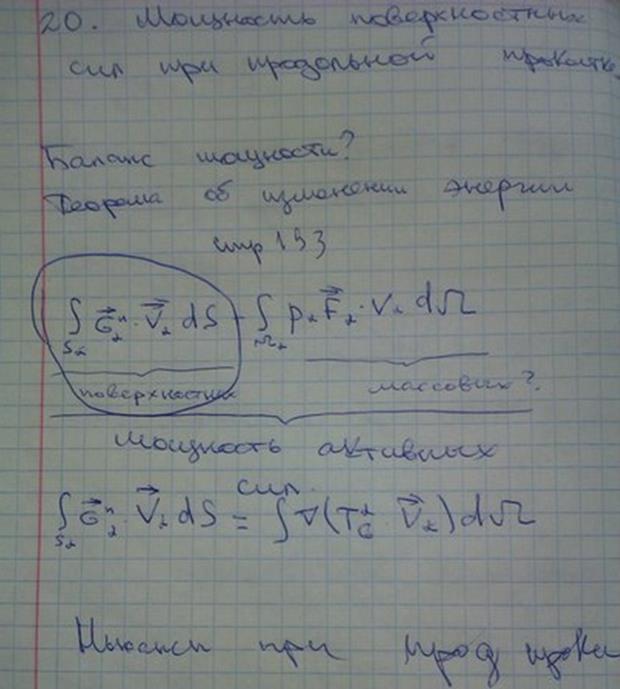 20. Мощность поверхностных
сил при продольной прокатке
Баланс мощности?
Теорема об изменении энергии
стр 193
∫_{S_α} σ⃗_α^n · V⃗_α dS + ∫_{Ω_α} ρ_α F⃗_α · V_α dΩ
поверхностных массовых?
Мощность активных
сил
∫_{S_α} σ⃗_α^n · V⃗_α dS = ∫ ∇(T_σ^α V⃗_α) dΩ
Нюансы при прод прока